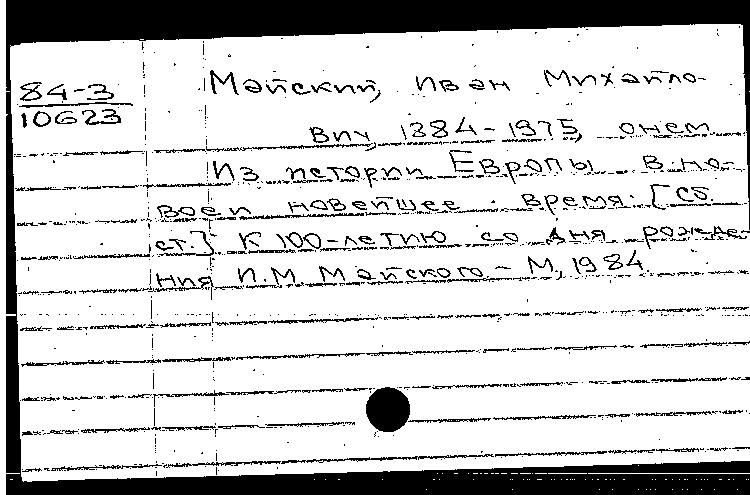 84-3
10623
Майский, Иван Михайло-
вич, 1884-1975, о нем
Из истории Европы в но-
вое и новейшее время: [Сб.
ст.] К 100-летию со дня рожде-
ния И.М. Майского - М, 1984